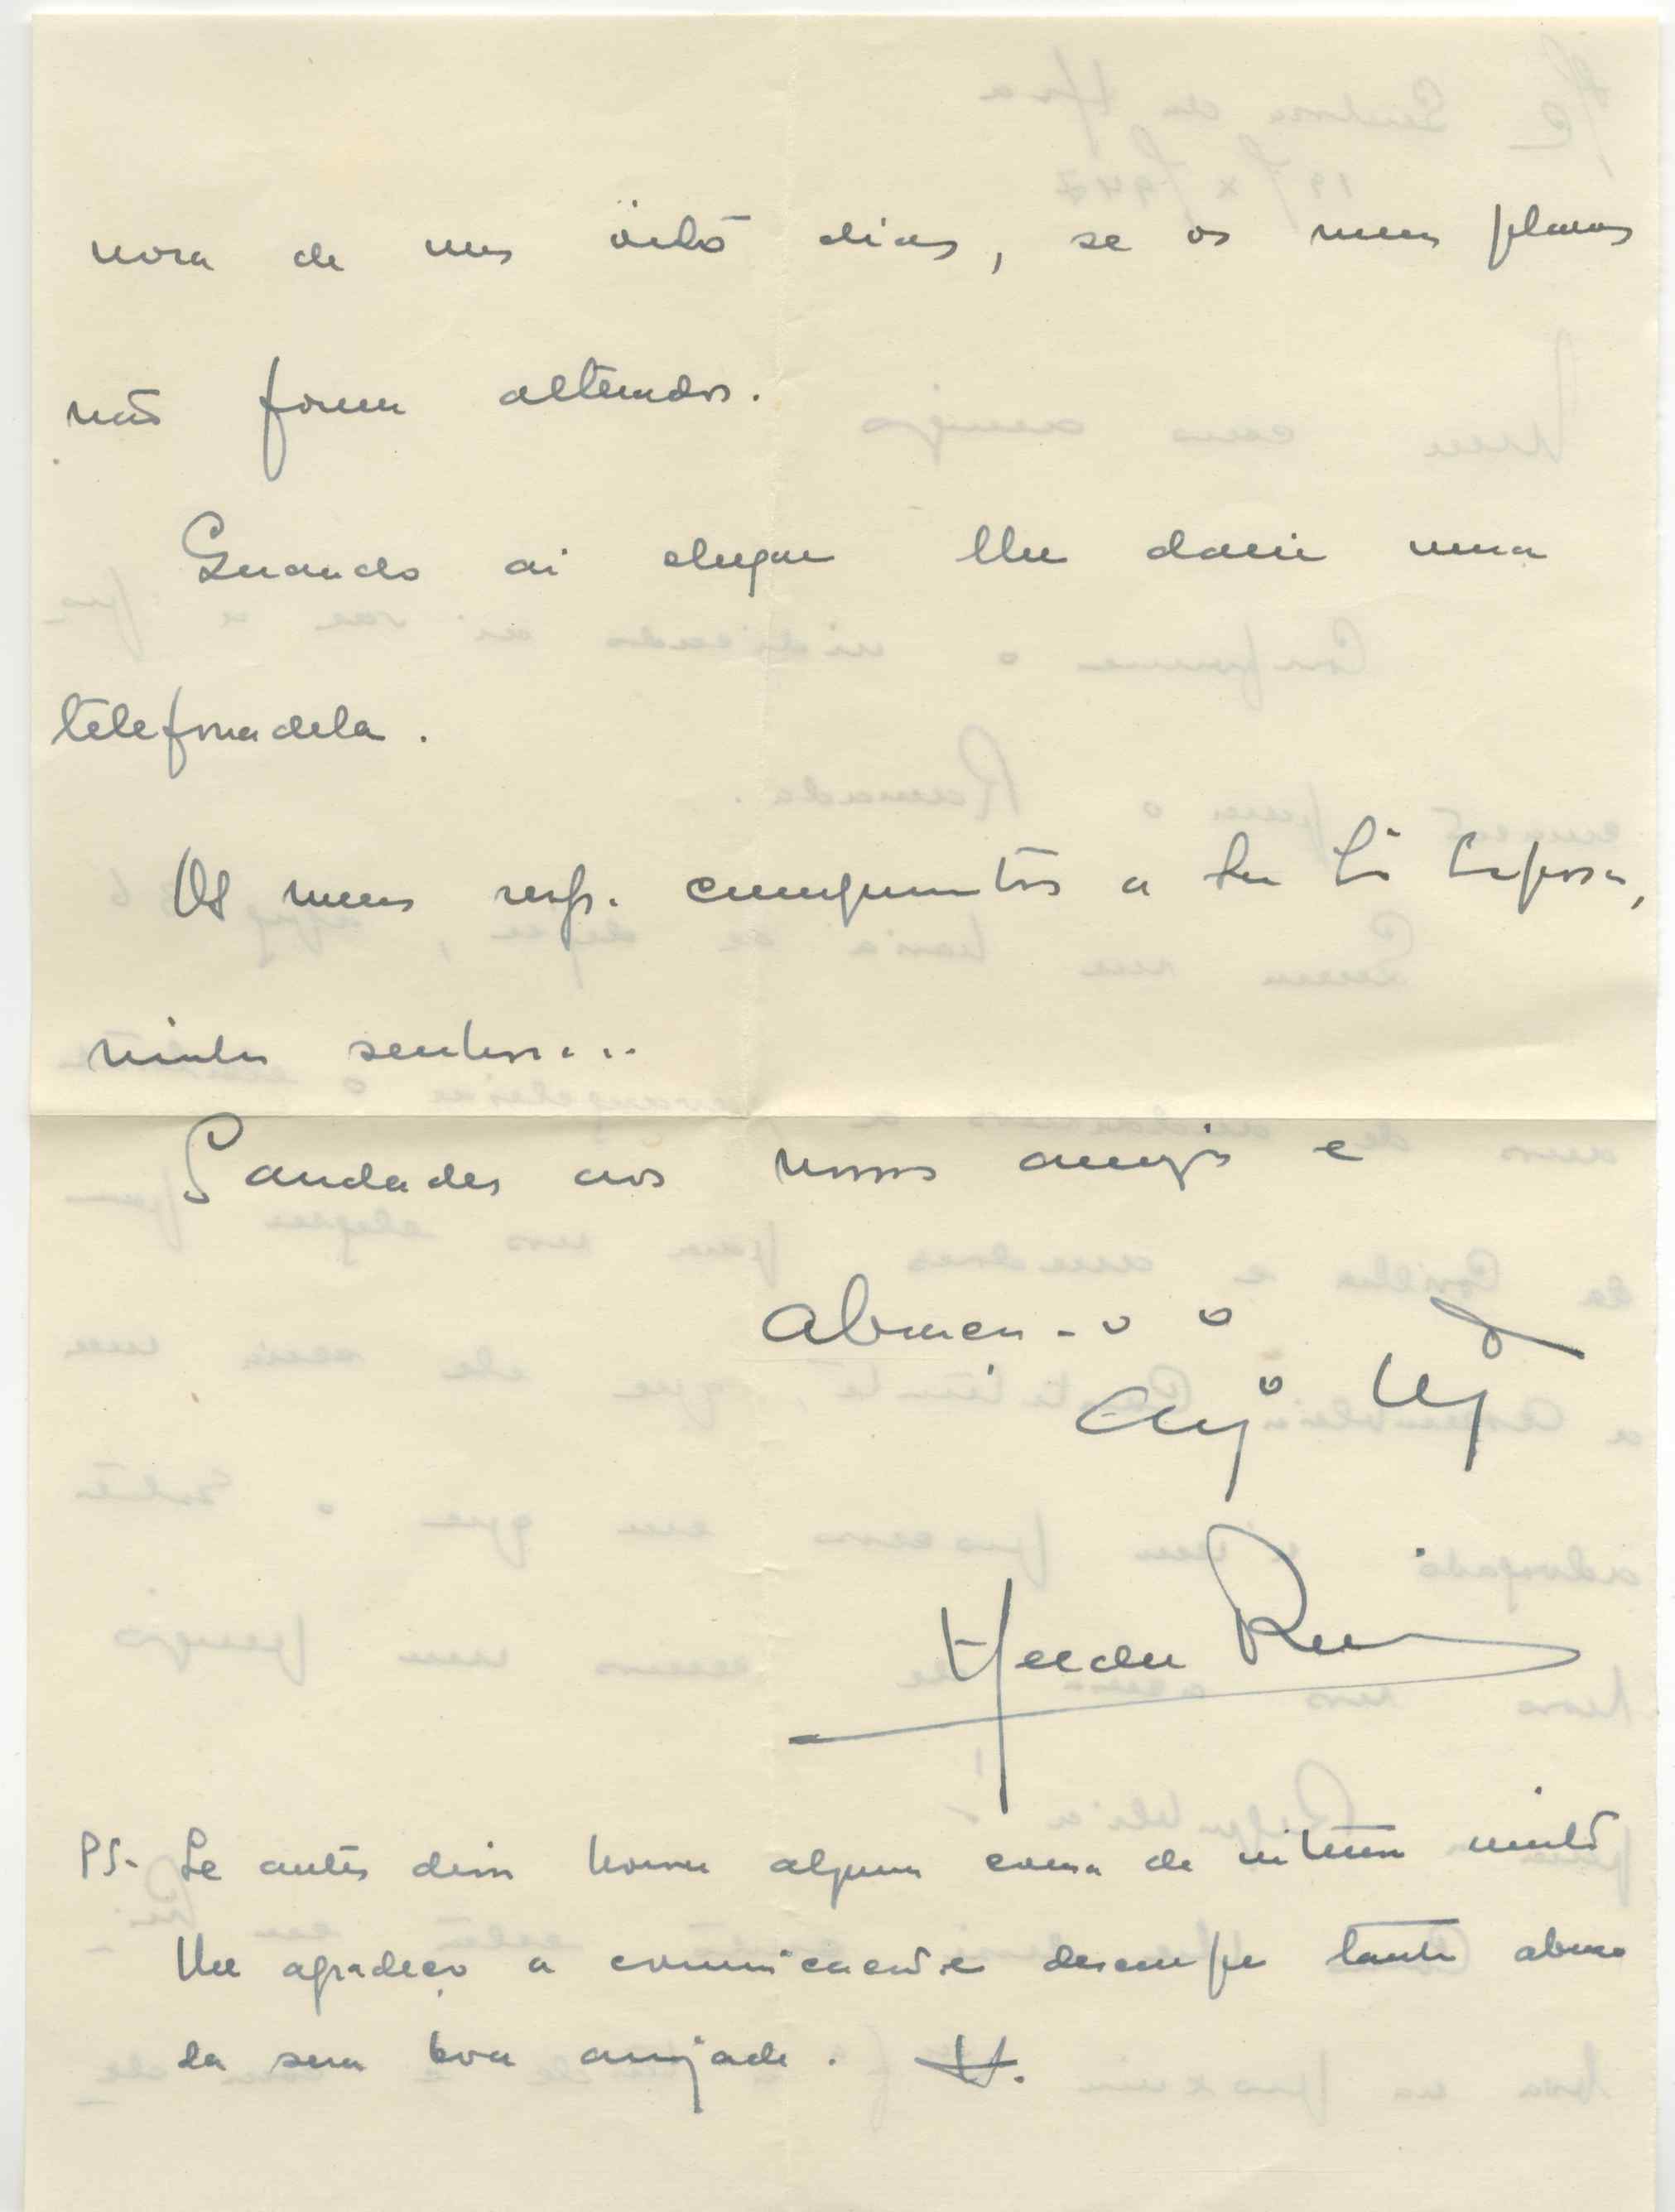 nora de uns oito dias, se os meus planos
não forem alterados.
Quando aí chegar lhe darei uma
telefonadela.
Os meus resp. cumprimentos a Sua Exª Esposa,
minha senhora...
Saudades aos nossos amigos e
abraça-o o
amº
Helder Ribeiro
PS- Se antes disso houver alguma cousa de interesse muito
lhe agradeço a comunicação e desculpe tanto abuso
da sua boa amizade. H.